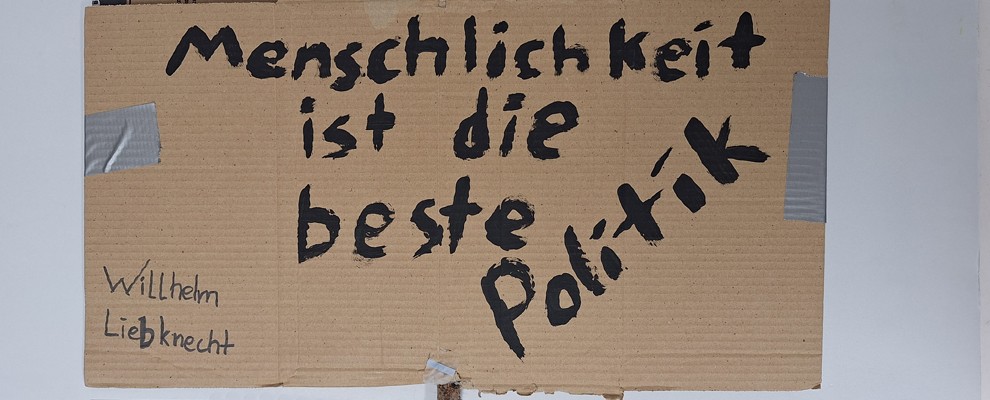 Menschlichkeit
ist die
beste
Politik
Willhelm
Liebknecht